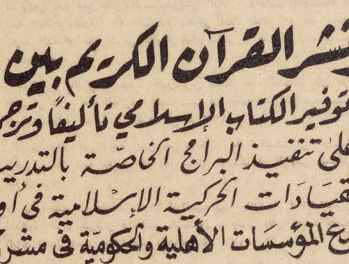 نشر القرآن الكريم بين
توفير الكتاب الإسلامي تأليفًا وترجم
على تنفيذ البرامج الخاصّة بالتدريب
لقيادات الحركية الإسلامية في أو
المؤسسات الأهلية والحكوميّة في مشر